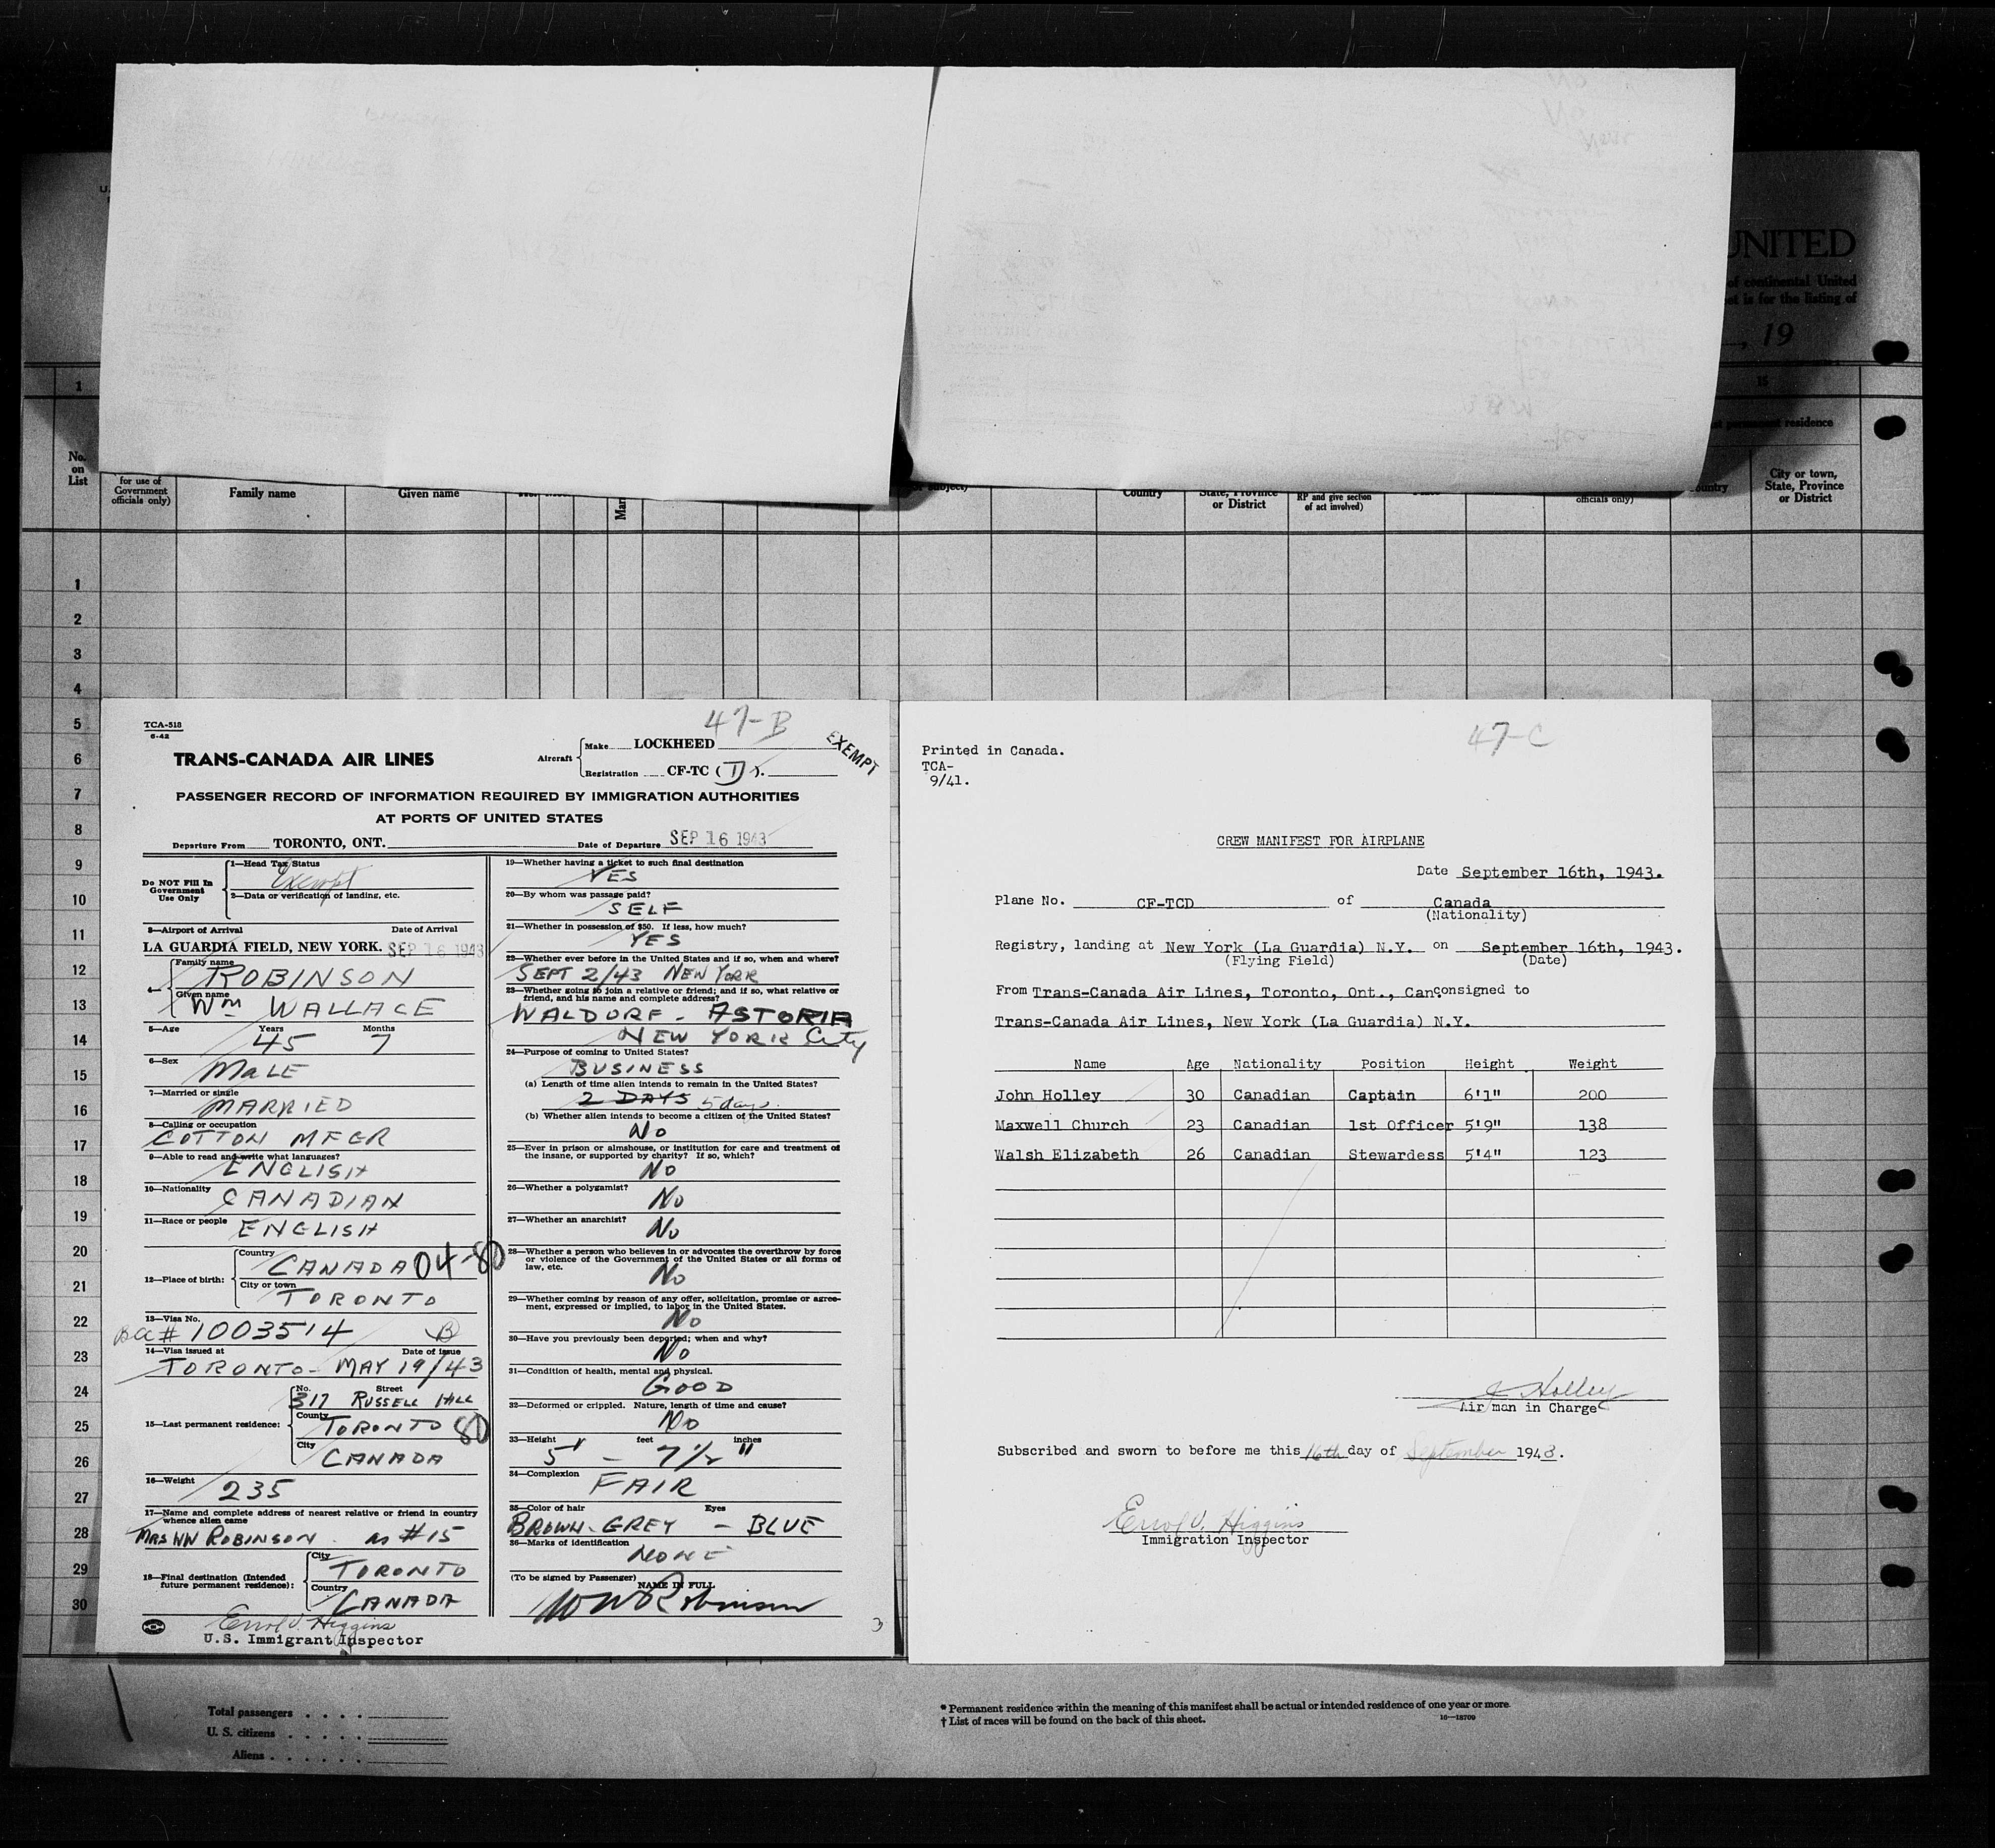 U.
UNITED
of continental United
et is for the listing of
, 19
1
15
permanent residence
No.
on
List
for use of
Government
officials only)
Family name
Given name
Mar
subject)
Country
State, Province
or District
RP and give section
of act involved)
officials only)
ountry
City or town,
State, Province
or District
1
2
3
4
5
6
7
8
9
10
11
12
13
14
15
16
17
18
19
20
21
22
23
24
25
26
27
28
29
30
TCA-518
6-42
47-B
EXEMPT
TRANS-CANADA AIR LINES
Aircraft
Make LOCKHEED
Registration CF-TC (D).
PASSENGER RECORD OF INFORMATION REQUIRED BY IMMIGRATION AUTHORITIES
AT PORTS OF UNITED STATES
Departure From TORONTO, ONT. Date of Departure SEP 16 1943
Do NOT Fill In
Government
Use Only
1—Head Tax Status
Exempt
2—Data or verification of landing, etc.
3—Airport of Arrival Date of Arrival
LA GUARDIA FIELD, NEW YORK. SEP 16 1943
4—
Family name
ROBINSON
Given name
Wm WALLACE
5—Age Years Months
45 7
6—Sex
MALE
7—Married or single
MARRIED
8—Calling or occupation
COTTON MFGR
9—Able to read and write what languages?
ENGLISH
10—Nationality
CANADIAN
11—Race or people
ENGLISH
12—Place of birth:
Country
CANADA 04-80
City or town
TORONTO
13—Visa No.
BCC# 1003514 B
14—Visa issued at Date of issue
TORONTO - MAY 19/43
15—Last permanent residence:
No. Street
317 RUSSELL HILL
County
TORONTO 80
City
CANADA
16—Weight
235
17—Name and complete address of nearest relative or friend in country
whence alien came
MRS WW ROBINSON as #15
18—Final destination (Intended
future permanent residence):
City
TORONTO
Country
CANADA
Errol V. Higgins
U.S. Immigrant Inspector
19—Whether having a ticket to such final destination
YES
20—By whom was passage paid?
SELF
21—Whether in possession of $50. If less, how much?
YES
22—Whether ever before in the United States and if so, when and where?
SEPT 2/43 NEW YORK
23—Whether going to join a relative or friend; and if so, what relative or
friend, and his name and complete address?
WALDORF - ASTORIA
NEW YORK City
24—Purpose of coming to United States?
BUSINESS
(a) Length of time alien intends to remain in the United States?
2 DAYS 5 days.
(b) Whether alien intends to become a citizen of the United States?
No
25—Ever in prison or almshouse, or institution for care and treatment of
the insane, or supported by charity? If so, which?
No
26—Whether a polygamist?
No
27—Whether an anarchist?
No
28—Whether a person who believes in or advocates the overthrow by force
or violence of the Government of the United States or all forms of
law, etc.
No
29—Whether coming by reason of any offer, solicitation, promise or agree-
ment, expressed or implied, to labor in the United States.
No
30—Have you previously been deported; when and why?
No
31—Condition of health, mental and physical.
GOOD
32—Deformed or crippled. Nature, length of time and cause?
No
33—Height feet inches
5' - 7½ "
34—Complexion
FAIR
35—Color of hair Eyes
BROWN-GREY - BLUE
36—Marks of identification
NONE
(To be signed by Passenger)
NAME IN FULL
WW Robinson
3
47-C
Printed in Canada.
TCA-
9/41.
CREW MANIFEST FOR AIRPLANE
Date September 16th, 1943.
Plane No. CF-TCD of Canada
(Nationality)
Registry, landing at New York (La Guardia) N.Y. on September 16th, 1943.
(Flying Field) (Date)
From Trans-Canada Air Lines, Toronto, Ont., Can. consigned to
Trans-Canada Air Lines, New York (La Guardia) N.Y.
Name Age Nationality Position Height Weight
John Holley 30 Canadian Captain 6'1" 200
Maxwell Church 23 Canadian 1st Officer 5'9" 138
Walsh Elizabeth 26 Canadian Stewardess 5'4" 123
J Holley
Air man in Charge
Subscribed and sworn to before me this 16th day of September 1943.
Errol V. Higgins
Immigration Inspector
Total passengers
U. S. citizens
Aliens
* Permanent residence within the meaning of this manifest shall be actual or intended residence of one year or more.
† List of races will be found on the back of this sheet.
16—18709